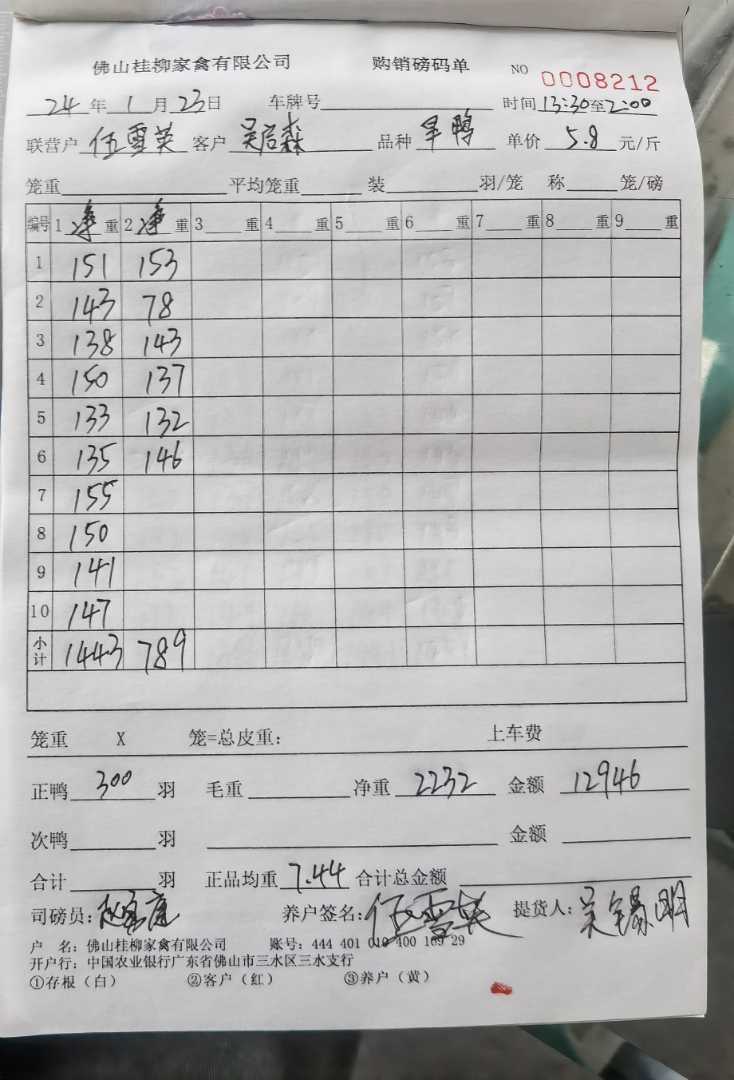 佛山桂柳家禽有限公司 购销磅码单 NO 0008212
24年1月23日 车牌号 时间13:30至2:00
联营户 伍雪英 客户 吴启森 品种 旱鸭 单价 5.8 元/斤
笼重 平均笼重 装 羽/笼 称 笼/磅
编号 1净重 2净重 3 重 4 重 5 重 6 重 7 重 8 重 9 重
1 151 153
2 143 78
3 138 143
4 150 137
5 133 132
6 135 146
7 155
8 150
9 141
10 147
小计 1443 789
笼重 X 笼=总皮重: 上车费
正鸭 300 羽 毛重 净重 2232 金额 12946
次鸭 羽 金额
合计 羽 正品均重 7.44 合计总金额
司磅员: 养户签名: 伍雪英 提货人: 吴锡明
户 名: 佛山桂柳家禽有限公司 账号: 444 401 010 400 169 29
开户行: 中国农业银行广东省佛山市三水区三水支行
①存根(白) ②客户(红) ③养户(黄)